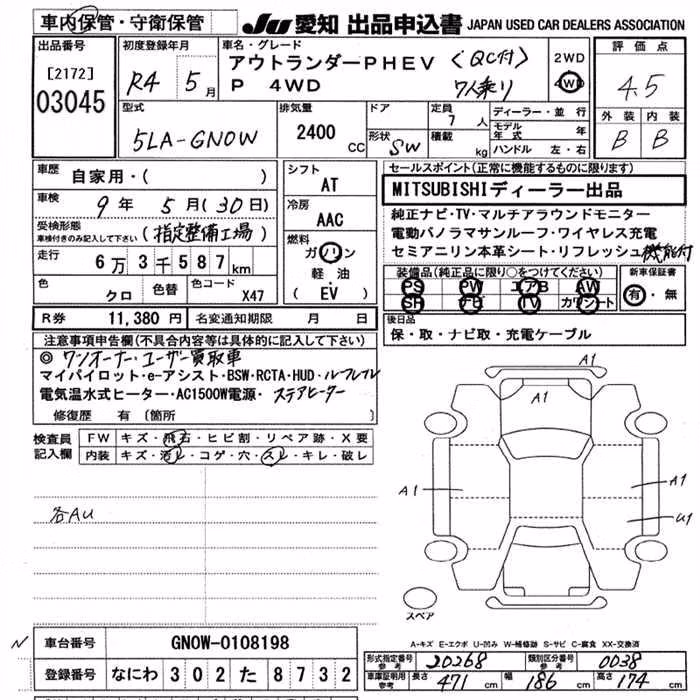 車内保管・守衛保管
JU 愛知 出品申込書 JAPAN USED CAR DEALERS ASSOCIATION
出品番号
[2172]
03045
初度登録年月
R4 5月
車名・グレード
アウトランダーPHEV (QC付)
P 4WD 7人乗り
2WD
4WD
評価点
4.5
外装 内装
B B
型式
5LA-GN0W
排気量
2400 CC
ドア
形状 SW
定員 7 人
積載 kg
ディーラー・並行
モデル年式 年
ハンドル 左・右
車歴
自家用・( )
車検
9年 5月(30日)
受検形態
車検付きのみ記入して下さい
(指定整備工場)
走行
6万3千587km
色 クロ 色替 色コード X47
シフト
AT
冷房
AAC
燃料
ガソリン
軽油
(EV)
セールスポイント(正常に機能するものに限ります)
MITSUBISHIディーラー出品
純正ナビ・TV・マルチアラウンドモニター
電動パノラマサンルーフ・ワイヤレス充電
セミアニリン本革シート・リフレッシュ機能付
装備品(純正品に限り○をつけてください)
PS PW エアB AW
SR ナビ TV カワシート
新車保証書
有・無
R券 11,380 円 名変通知期限 月 日
後日品
保・取・ナビ取・充電ケーブル
注意事項申告欄(不具合内容等は具体的に記入して下さい)
◎ワンオーナー・ユーザー買取車
マイパイロット・e-アシスト・BSW・RCTA・HUD・ルーフレル
電気温水式ヒーター・AC1500W電源・ステアヒーター
修復歴 有 (箇所
検査員
記入欄
FW キズ・飛石・ヒビ割・リペア跡・X要
内装 キズ・汚レ・コゲ・穴・スレ・キレ・破レ
各AU
A1
A1
A1
A1
U1
スペア
A-キズ E-エクボ U-凹み W-補修跡 S-サビ C-腐食 XX-交換済
N 車台番号 GN0W-0108198
登録番号 なにわ 302 た 8732
形式指定番号 参考 20268 類別区分番号 参考 0038
車庫証明用 参考 長さ 471 cm 幅 186 cm 高さ 174 cm